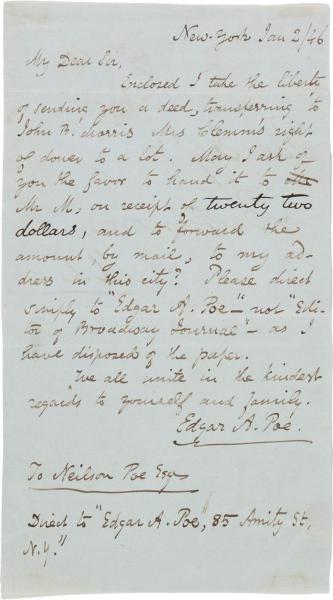 New-York Jan 2/46
My Dear Sir,
Enclosed I take the liberty
of sending you a deed, transferring to
John B. Morris Mrs Clemm's right
of dower to a lot. May I ask of
you the favor to hand it to the
Mr M, on receipt of twenty two
dollars, and to forward the
amount, by mail, to my ad-
dress in this city? Please direct
simply to "Edgar A. Poe—" not "Edi-
tor of Broadway Journal"— as I
have disposed of the paper.
We all unite in the kindest
regards to yourself and family.
Edgar A. Poe.
To Neilson Poe Esqr
Direct to "Edgar A. Poe", 85 Amity St,
N.Y."